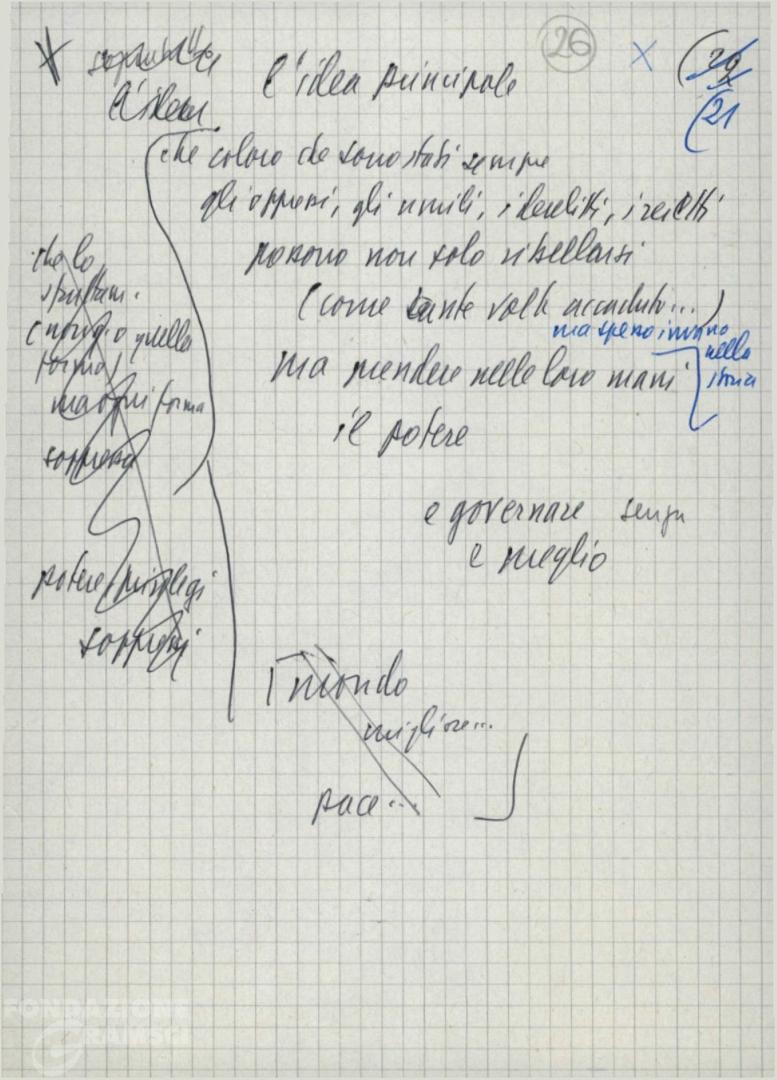 26
X
(29
(21
soprattutto
L'idea
L'idea principale
che coloro che sono stati sempre
gli oppressi, gli umili, i derelitti, i reietti
possono non solo ribellarsi
(come tante volte accaduto...)
ma spesso invano
nella
storia
ma prendere nelle loro mani
il potere
e governare senza
e meglio
che lo
sfruttam.
(non solo quella
forma)
ma ogni forma
soppressa
potere privilegi
soppressi
mondo
migliore...
pace...
FONDAZIONE
GRAMSCI